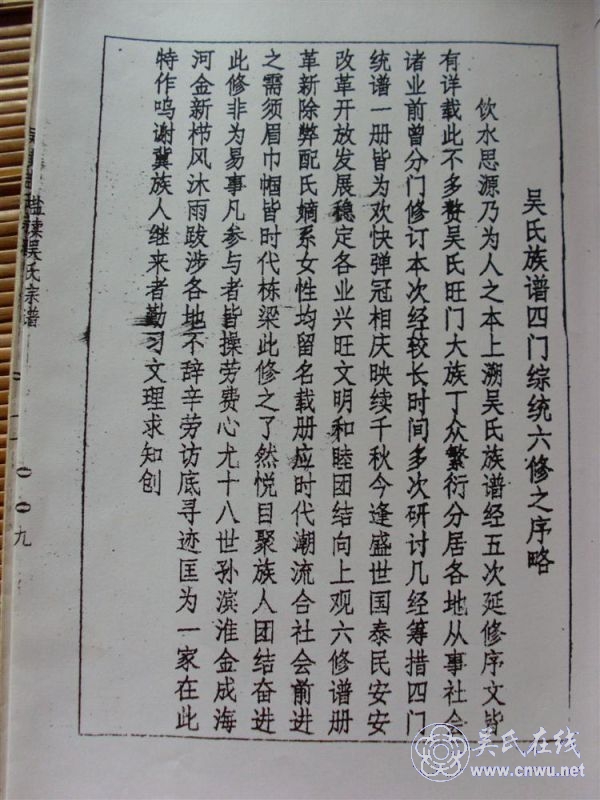 吴氏族谱四门综统六修之序略
饮水思源乃为人之本上溯吴氏族谱经五次延修序文皆
有详载此不多赘吴氏旺门大族丁众繁衍分居各地从事社会
诸业前曾分门修订本次经较长时间多次研讨几经筹措四门
统谱一册皆为欢快弹冠相庆映续千秋今逢盛世国泰民安安
改革开放发展稳定各业兴旺文明和睦团结向上观六修谱册
革新除弊配氏嫡系女性均留名载册应时代潮流合社会前进
之需须眉巾帼皆时代栋梁此修之了然悦目聚族人团结奋进
此修非为易事凡参与者皆操劳费心尤十八世孙滨淮金成海
河金新栉风沐雨跋涉各地不辞辛劳访底寻迹匡为一家在此
特作鸣谢冀族人继来者勤习文理求知创
吴氏宗谱
二〇〇九
吴氏在线
www.cnwu.net